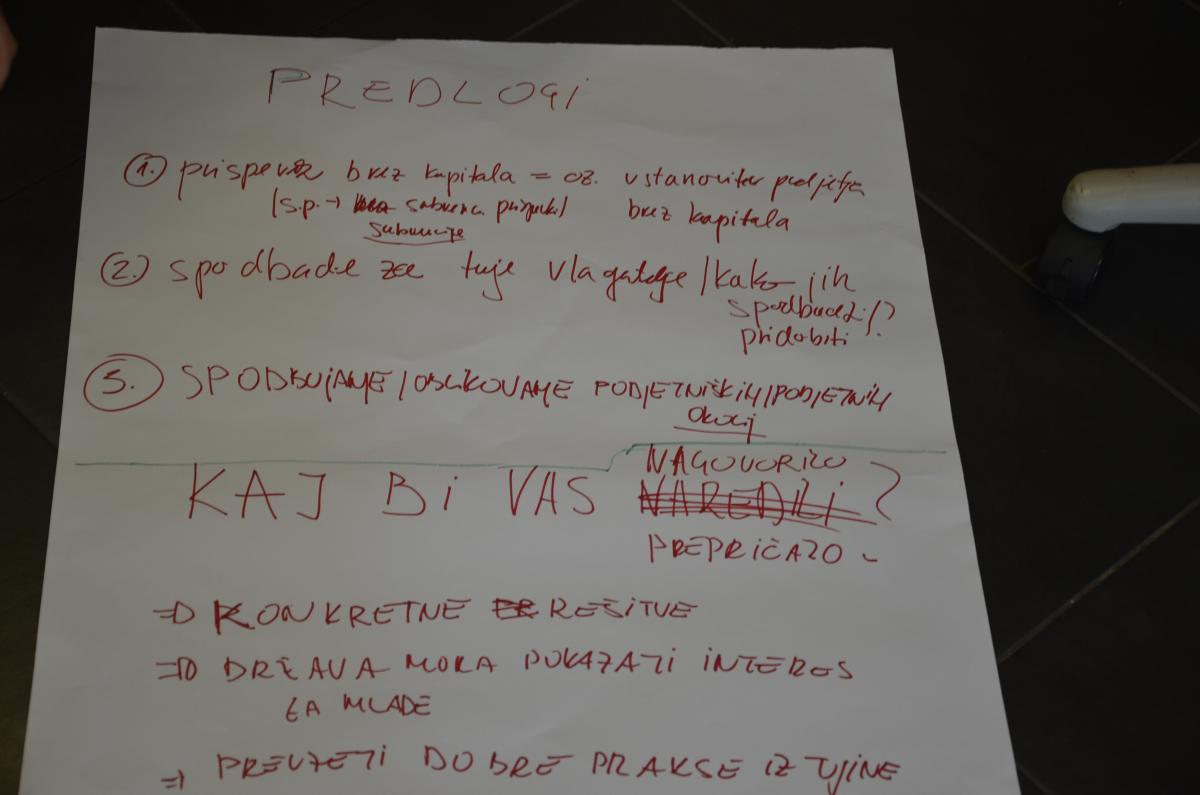 PREDLOGI
1. prispevek brez kapitala = oz. ustanovitev podjetja
(s.p. → subvenc. prispevki) brez kapitala
subvencije
2. spodbade za tuje vlagatelje / kako jih
spodbudi/?
pridobiti
3. SPODBUJANJE / OBLIKOVANJE PODJETNIŠKIH / PODJETNIH
okolij
NAGOVORILO
KAJ BI VAS NAREDILI ?
PREPRIČALO
⇒ KONKRETNE REŠITVE
⇒ DRŽAVA MORA POKAZATI INTERES
ZA MLADE
⇒ PREVZETI DOBRE PRAKSE IZ TUJINE